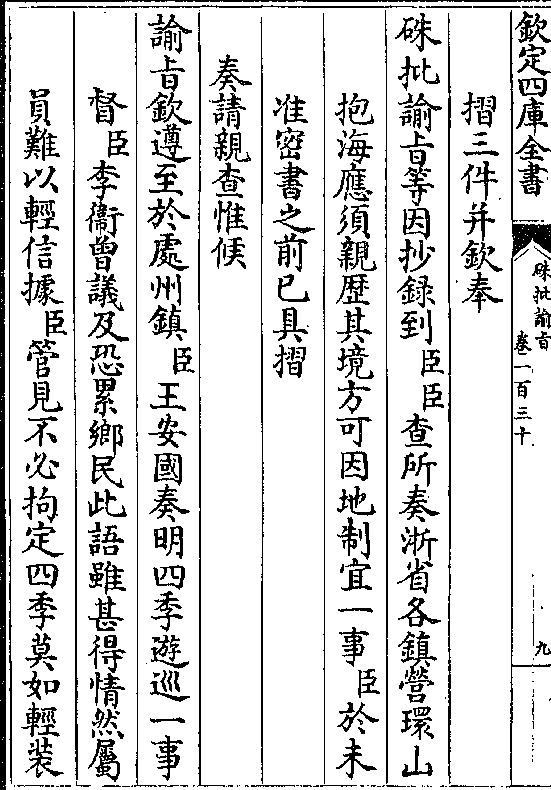 欽定四庫全書
硃批諭旨
卷一百三十
九
摺三件并欽奉
硃批諭旨等因抄錄到臣臣查所奏浙省各鎮營環山
抱海應須親歷其境方可因地制宜一事臣於未
准密書之前已具摺
奏請親查惟候
諭旨欽遵至於處州鎮臣王安國奏明四季遊巡一事
督臣李衞曾議及恐累鄉民此語雖甚得情然屬
員難以輕信據臣管見不必拘定四季莫如輕裝